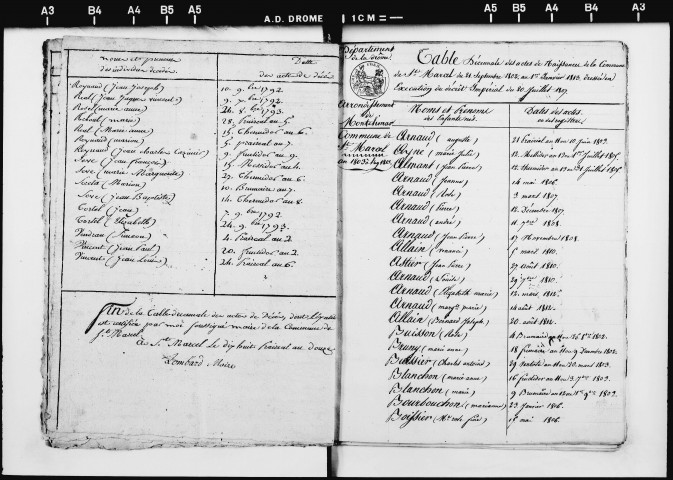 A3 B4 A4 B5 A5 A.D. DROME 1 CM = A5 B5 A4 B4 A3
noms et prénoms
des individus décédés
Date
des actes de décès
Reynaud (Jean Joseph) 10. 9.bre 1792.
Réal (Jean Jaques vincent) 9. 7.bre 1792.
(marie anne) 26. 8.bre 1793.
(marie) 28. Prairial an 5.
Réal (Marie anne) 15. Thermidor an 6.
Reynaud (marion) 5. prairial an 7.
Reynaud (Jean Casimir) 9. fructidor an 9.
Sove (Jean François) 15. Messidor an 4.
Sove (marie Marguerite) 27. Thermidor an 6.
(Marion) 10. Brumaire an 7.
Sove (Jean Baptiste) 14. Thermidor an 8.
Tortel (Jean) 7. 9.bre 1792.
Tortel (Elizabeth) 24. 9.bre 1793.
(Simeon) 4. Prairial an 2.
Vincent (Jean Paul) 20. fructidor an 2.
Vincent (Jean Louis) 24. Prairial an 6.
Fin de la Table décennale des actes de Décès,
est certifiée par moi soussigné maire de la Commune de
St. Marcel
à St. Marcel le dix huit Prairial an Douze
Lombard Maire
Département
de la Drôme.
Table Décennale des actes de Naissance de la Commune
de St. Marcel du 21 Septembre 1802 au 1er Janvier 1813, dressée en
Execution du décrêt Impérial du 20 Juillet 1807
arrondissement
de
Montélimar
Commune de
St. Marcel
an 1803 à 1813
Noms et Prénoms
des Enfants nés.
Dates des actes
ou des registres
Arnaud (auguste) 21 Prairial an 11 ou 10 Juin 1803.
(marie Julie) 12 Messidor an 13 ou 1er Juillet 1805.
(Jean Pierre) 12 Thermidor an 13 ou 31 Juillet 1805
Arnaud (Jeanne) 14 mai 1806.
Arnaud (Rose) 3 mars 1807
Arnaud (Pierre) 12 Décembre 1807.
Arnaud (andré) 11 7.bre 1808.
Arnaud (Jean Pierre) 17 Novembre 1808.
Allain (marie) 5 mars 1810.
Astier (Jean Pierre) 27 août 1810.
Arnaud (Louise) 29 7.bre 1810.
Arnaud (Elizabeth marie) 12 mars 1812.
Arnaud (marg.te marie) 14 août 1812.
Allain (Bernard Joseph) 20 août 1812.
Buisson (Rose) 4 Brumaire an 11 ou 26 8.bre 1802.
Bruny (marie anne) 18 frimaire an 11 ou 9 Décembre 1802.
Bussier (Charles antoine) 29 Ventôse an 11 ou 20 mars 1803.
Blanchon (marie anne) 16 fructidor an 11 ou 3 7.bre 1803.
Blanchon (marie) 9 Brumaire an 12 ou 1er 9.bre 1803.
Bourbouchon (marianne) 23 Janvier 1806.
Boissier (M.ie rose) 1er mai 1806.